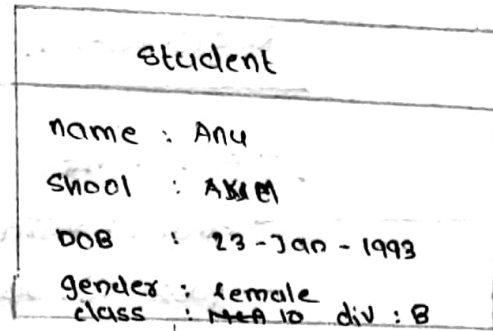 Student
name : Anu
Shool :
DOB : 23-Jan-1993
gender : female
class : 10 div : B